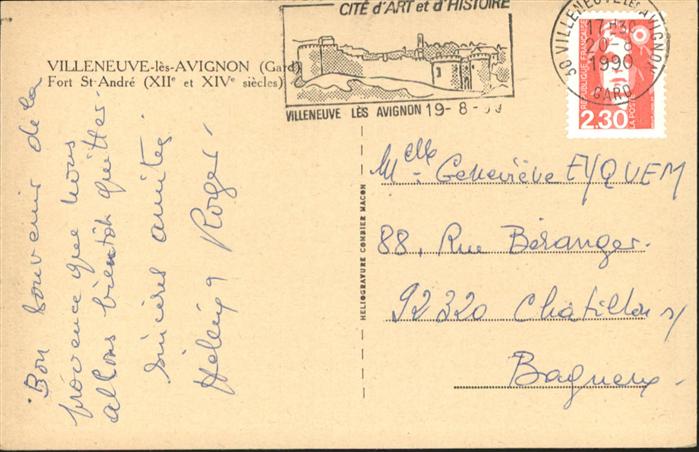 CITÉ d'ART et d'HISTOIRE
VILLENEUVE LÈS AVIGNON 19-8-
VILLENEUVE LES AVIGNON
17H30
20-8
1990
30
GARD
RÉPUBLIQUE FRANÇAISE
LA POSTE
2,30
VILLENEUVE-lès-AVIGNON (Gard)
Fort St-André (XIIe et XIVe siècles)
Bon souvenir de la
provence que nous
allons bientôt quitter
sincères amitiés.
Roger.
HELIOGRAVURE COMBIER MACON
Melle Geneviève EYQUEM
88, Rue Béranger.
92320 Châtillon s/
Bagneux